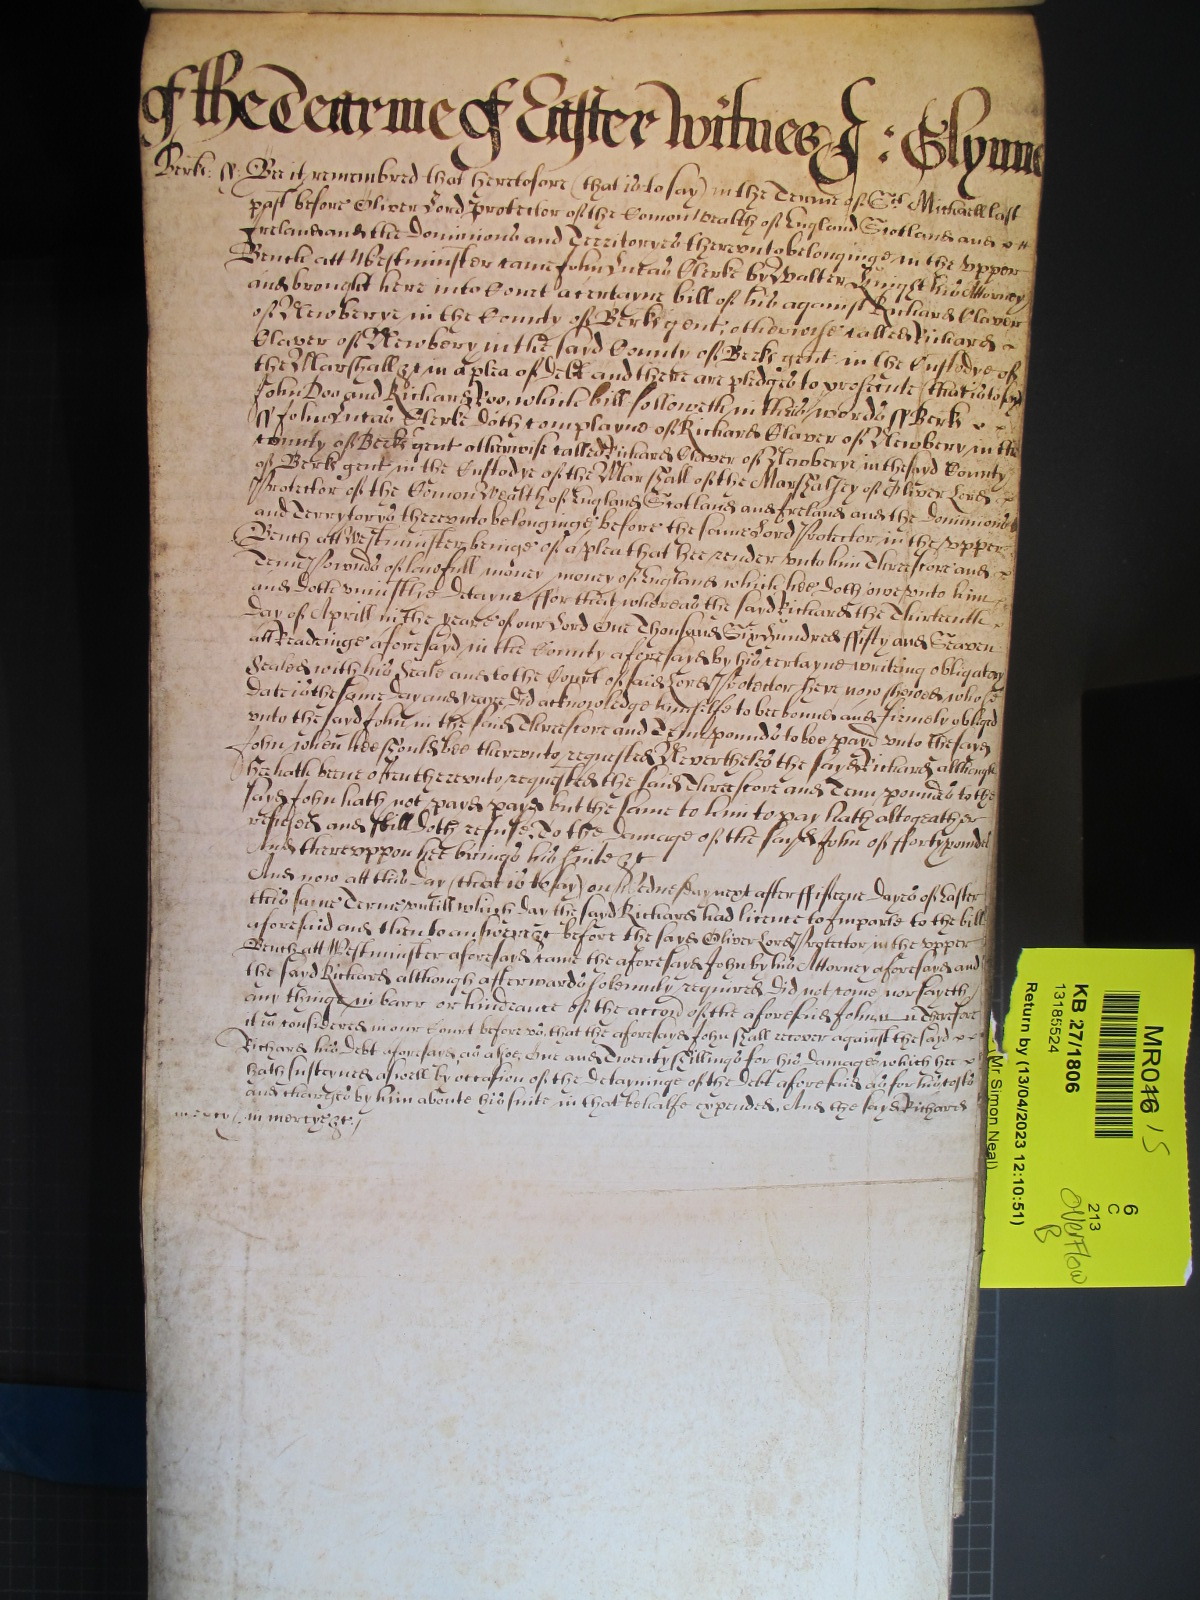 of the Tearme of Easter Witnes J: Glynne
Berk: ss: Bee it remembred that heretofore (that is to say) in the Terme of St Michaell last
past before Oliver Lord Protector of the Comonwealth of England Scotland and
Ireland and the Dominions and Territoryes therevnto belonginge in the vpper
Bench att Westminster came John Lucas Clerke by Walter his Attorney
and brought here into Court a certayne bill of his against Richard Claver
of Newberye in the County of Berk gent, otherwise called Richard
Claver of Newbery in the sayd County of Berk gent in the Custodye of
the Marshall &c in a plea of Debt and there are pledges to prosecute (that is to say)
John Doo and Richard Roo, which bill followeth in theis words ss Berk
ss John Lucas Clerke doth complayne of Richard Claver of Newbery in the
County of Berk gent otherwise called Richard Claver of Newberye in the sayd County
of Berk gent in the Custodye of the Marshall of the Marshalsey of Oliver Lord
Protector of the Comonwealth of England Scotland and Ireland and the Dominions
and Terrytorys therevnto belonginge before the same Lord Protector in the vpper
Bench att Westminster beinge of a plea that hee render vnto him Threescore and
Tenn Pownds of lawfull money money of England which hee doth owe vnto him
and doth vniustlye detayne ffor that whereas the sayd Richard the Thirteenth
day of Aprill in the yeare of our Lord One Thousand Six Hundred ffifty and Seaven
att Readinge aforesayd in the County aforesayd by his certayne writing obligatory
Sealed with his Seale and to the Court of said Lord Protector here now shewed whose
date is the same day and yeare did acknowledge himselfe to bee bound and firmely obliged
vnto the sayd John in the said Threescore and Tenn pounds to bee payd vnto the sayd
John when hee should bee therevnto requested Neverthelesse the sayd Richard although
hee hath beene often therevnto requested the said Threescore and Tenn pounds to the
sayd John hath not payd payd but the same to him to pay hath altogeather
refused and still doth refuse To the damage of the sayd John of fforty pounds
And therevppon hee brings his suite &c
And now att this day (that is to say) on Wednesday next after ffifteene dayes of Easter
this same Terme vntill which day the sayd Richard had licence to imparle to the bill
aforesaid and then to answere &c before the sayd Oliver Lord Protector in the vpper
Bench att Westminster aforesayd came the aforesayd John by his Attorney aforesayd and
the sayd Richard although afterwards solemnly required did not come nor sayeth
any thinge in barr or hindrance of the accon of the aforesaid John Therefore
it is considered in our Court before vs that the aforesayd John shall recover against the sayd
Richard his Debt aforesayd as alsoe One and Twenty shillings for his damages which hee
hath susteyned aswell by occasion of the detayninge of the debt aforesaid as for his costs
and charges by him aboute his suite in that behalfe expended, And the sayd Richard
mercy in mercye &c./
MR015
6
C
213
Overflow
B
KB 27/1806
13185524
Return by (13/04/2023 12:10:51)
(Mr. Simon Neal)